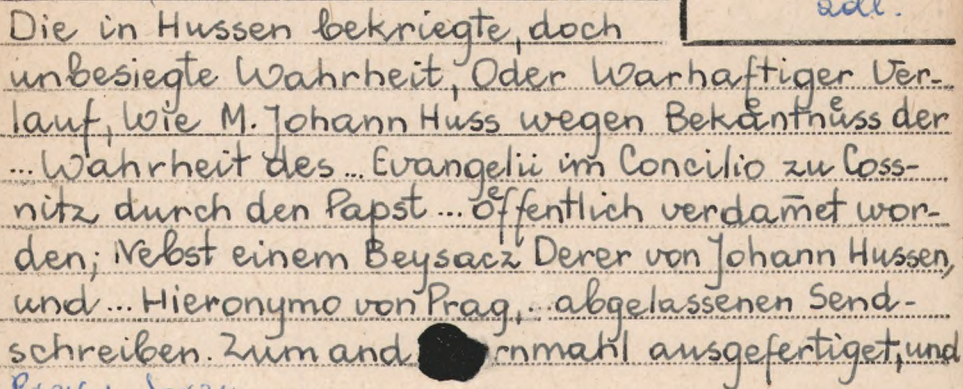 zdl.
Die in Hussen bekriegte, doch
unbesiegte Wahrheit, Oder Warhaftiger Ver-
lauf, Wie M. Johann Huss wegen Bekaͤntnuͤss der
... Wahrheit des ... Evangelii im Concilio zu Coss-
nitz durch den Papst ... oͤffentlich verdam̄et wor-
den; Nebst einem Beysacz Derer von Johann Hussen,
und ... Hieronymo von Prag, .. abgelassenen Send-
schreiben. Zum and rnmahl ausgefertiget, und